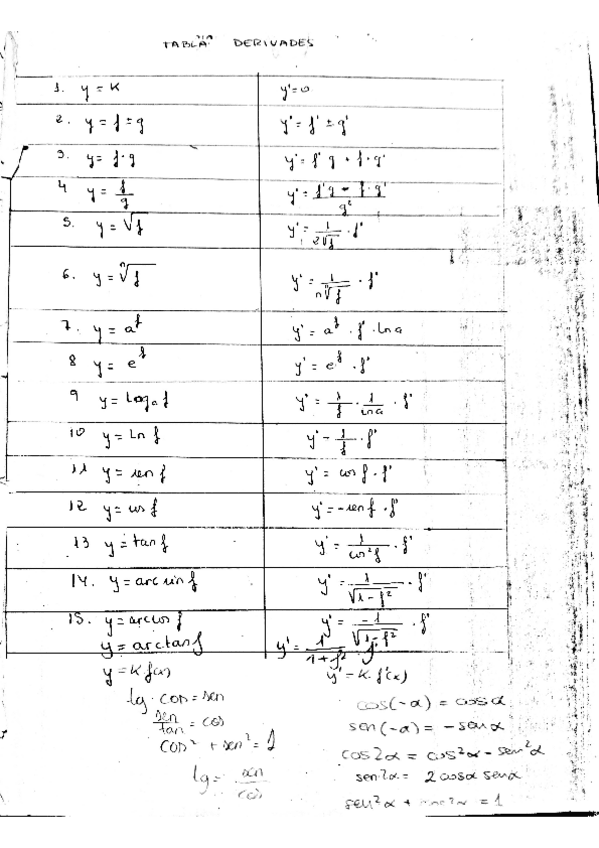 TABLA DERIVADES
1. y = K    y' = 0
2. y = f ± g    y' = f' ± g'
3. y = f · g    y' = f' g + f · g'
4 y = f/g    y' = f'g - f · g' / g²
5. y = √f    y' = 1/2√f · f'
6. y = ⁿ√f    y' = 1/n ⁿ√f · f'
7. y = a^f    y' = a^f · f' · Ln a
8 y = e^f    y' = e^f · f'
9 y = Logₐ f    y' = 1/f · 1/Lna · f'
10 y = Ln f    y' = 1/f · f'
11 y = sen f    y' = cos f · f'
12 y = cos f    y' = -sen f · f'
13 y = tan f    y' = 1/cos² f · f'
14. y = arc sin f    y' = 1/√1-f² · f'
15. y = arccos f    y' = -1/√1-f² · f'
y = arctan f    y' = 1/1+f² · f'
y = K f(x)    y' = K · f'(x)
tg · cos = sen
sen/tan = cos
cos² + sen² = 1
tg = sen/cos
cos(-α) = cosα
sen(-α) = - senα
cos2α = cos²α - sen²α
sen2α = 2 cosα senα
sen²α + = 1